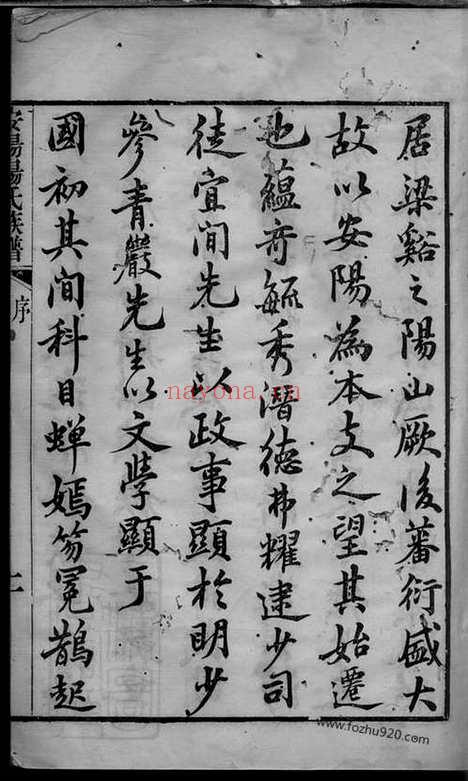 居梁谿之陽山厥後蕃衍盛大
故以安陽為本支之望其始遷
也蘊奇毓秀潛德弗耀逮少司
徒宜閒先生以政事顯於明少
參青巖先生以文學顯于
國初其間科目蟬嫣笏冕鵲起
安陽楊氏族譜
序
nayona.cn
www.fozhu920.com